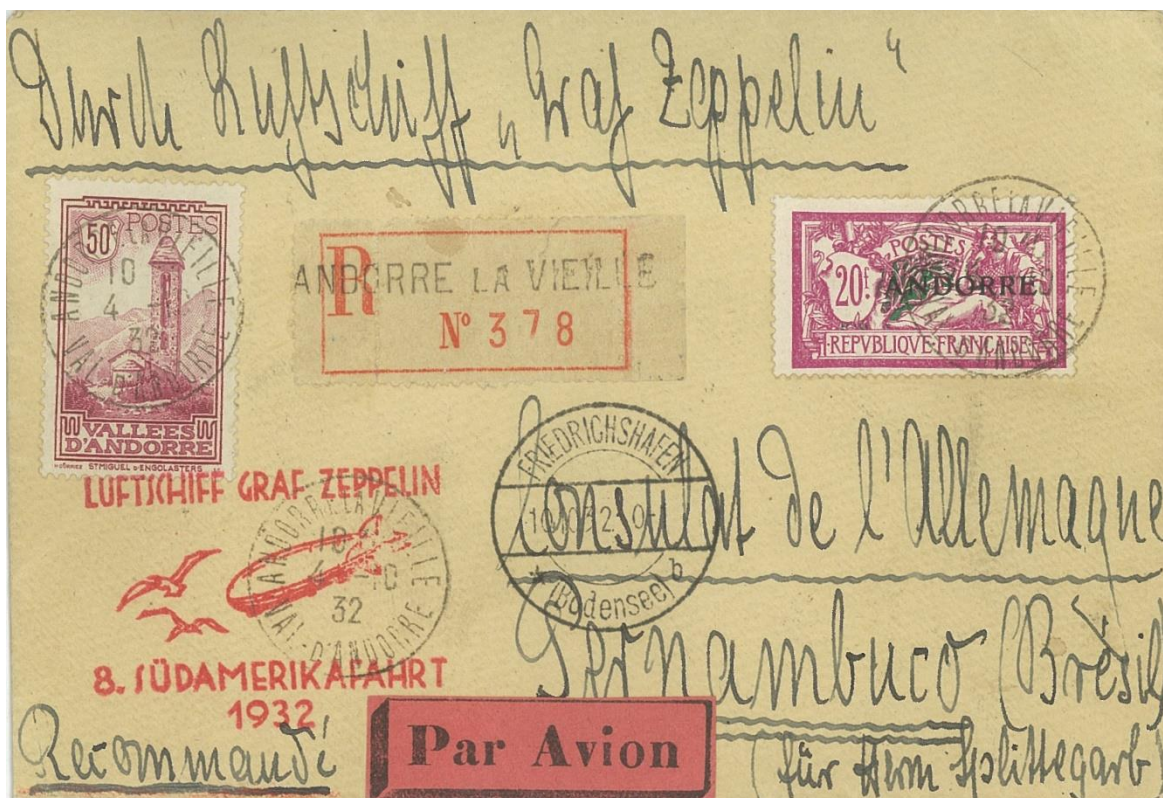 Durch Luftschiff „Graf Zeppelin“
50c POSTES
VALLEES
D'ANDORRE
ST MIGUEL D'ENGOLASTERS
ANDORRE LA VIEILLE
10
4 -10
32
VAL D'ANDORRE
R
ANDORRE LA VIEILLE
N° 378
POSTES
20f
ANDORRE
REPVBLIQVE FRANÇAISE
ANDORRE LA VIEILLE
VAL D'ANDORRE
LUFTSCHIFF GRAF ZEPPELIN
ANDORRE LA VIEILLE
10
4 -10
32
VAL D'ANDORRE
8. SÜDAMERIKAFAHRT
1932
FRIEDRICHSHAFEN
* (Bodensee) b
Consulat de l'Allemagne
Pernambuco (Brésil
(für Herrn Splittegarb)
Recommandé
Par Avion